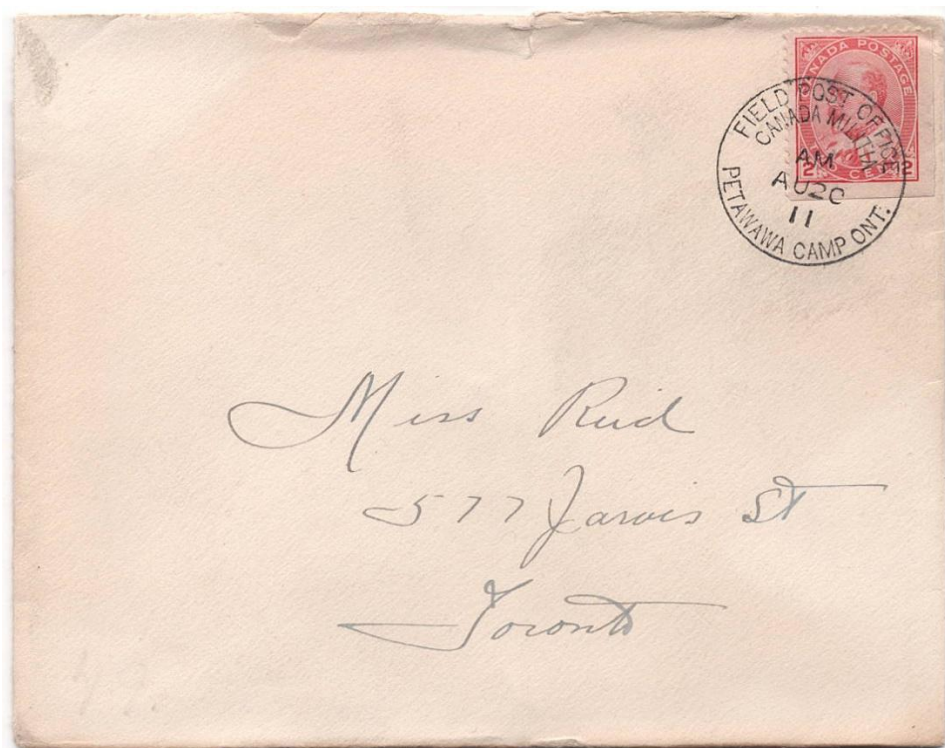 CANADA POSTAGE
2 CENTS 2
FIELD POST OFFICE
CANADA MILITIA
AM
AU 20
11
PETAWAWA CAMP ONT.
Miss Reid
577 Jarvis St
Toronto